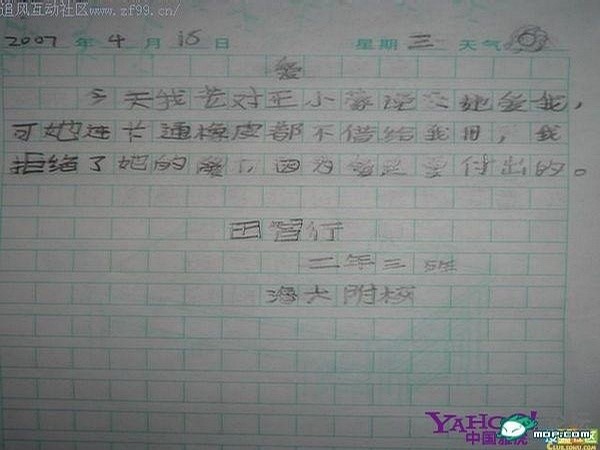 追风互动社区
www.zf99.cn/
2007 年 4 月 18 日 星期 三 天气
爱
今天我 对 王小 说 她爱我，
可她连卡通橡皮都不借给我用，我
拒绝了她的爱，因为爱是要付出的。
田 行
二年三班
海大附校
YAHOO!
中国雅虎
MOP.COM